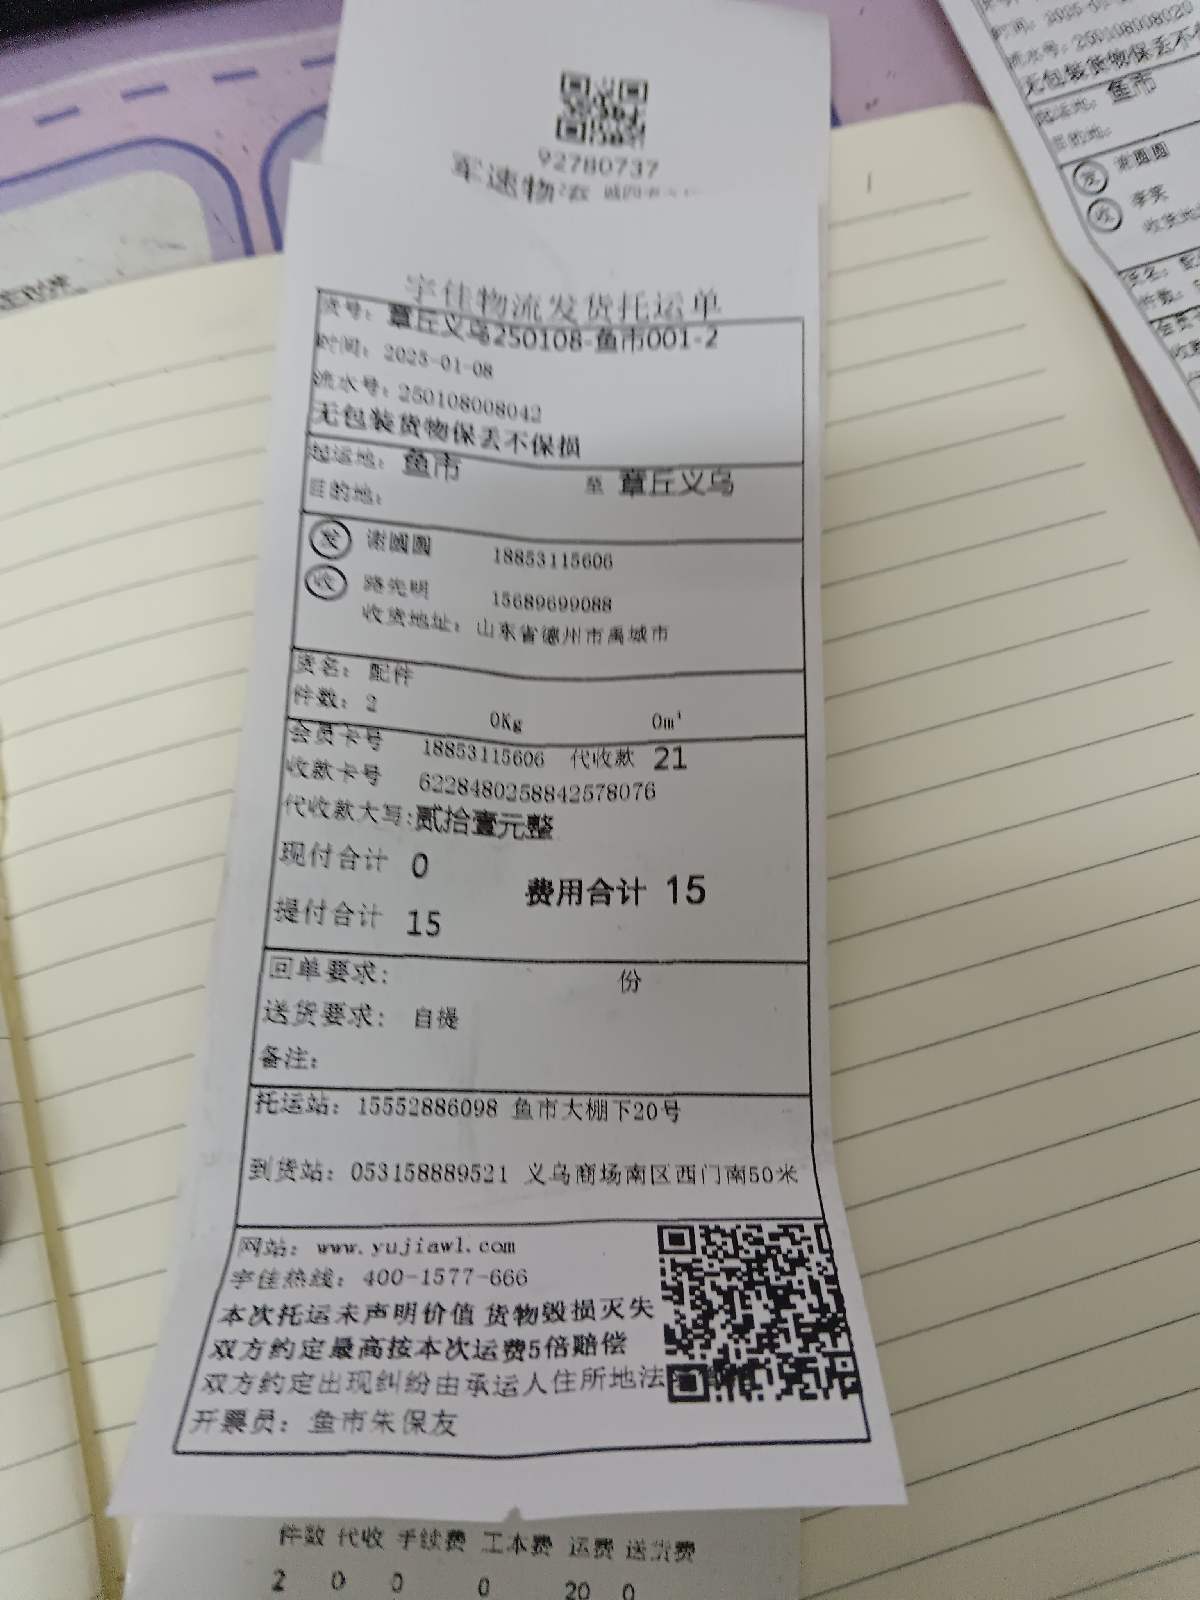 92780737
军速物流
宇佳物流发货托运单
货号: 章丘义乌250108-鱼市001-2
时间: 2025-01-08
流水号: 250108008042
无包装货物保丢不保损
起运地: 鱼市 至 章丘义乌
目的地:
发 谢圆圆 18853115606
收 路先明 15689699088
收货地址: 山东省德州市禹城市
货名: 配件
件数: 2 0Kg 0m³
会员卡号 18853115606 代收款 21
收款卡号 6228480258842578076
代收款大写:贰拾壹元整
现付合计 0
费用合计 15
提付合计 15
回单要求: 份
送货要求: 自提
备注:
托运站: 15552886098 鱼市大棚下20号
到货站: 053158889521 义乌商场南区西门南50米
网站: www.yujiawl.com
宇佳热线: 400-1577-666
本次托运未声明价值 货物毁损灭失
双方约定最高按本次运费5倍赔偿
双方约定出现纠纷由承运人住所地法
开票员: 鱼市朱保友
件数 代收 手续费 工本费 运费 送货费
2 0 0 0 20 0
流水号: 250108008020
无包装货物保丢不
起运地: 鱼市
目的地:
发 谢圆圆
收 李笑
收货地
货名: 配
件数: